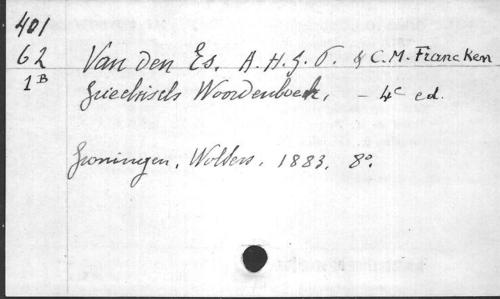 401
62 Van den Es, A.H.G.P. & C.M. Francken
1B Grieksch Woordenboek, - 4e ed.
Groningen, Wolters, 1883, 8°.